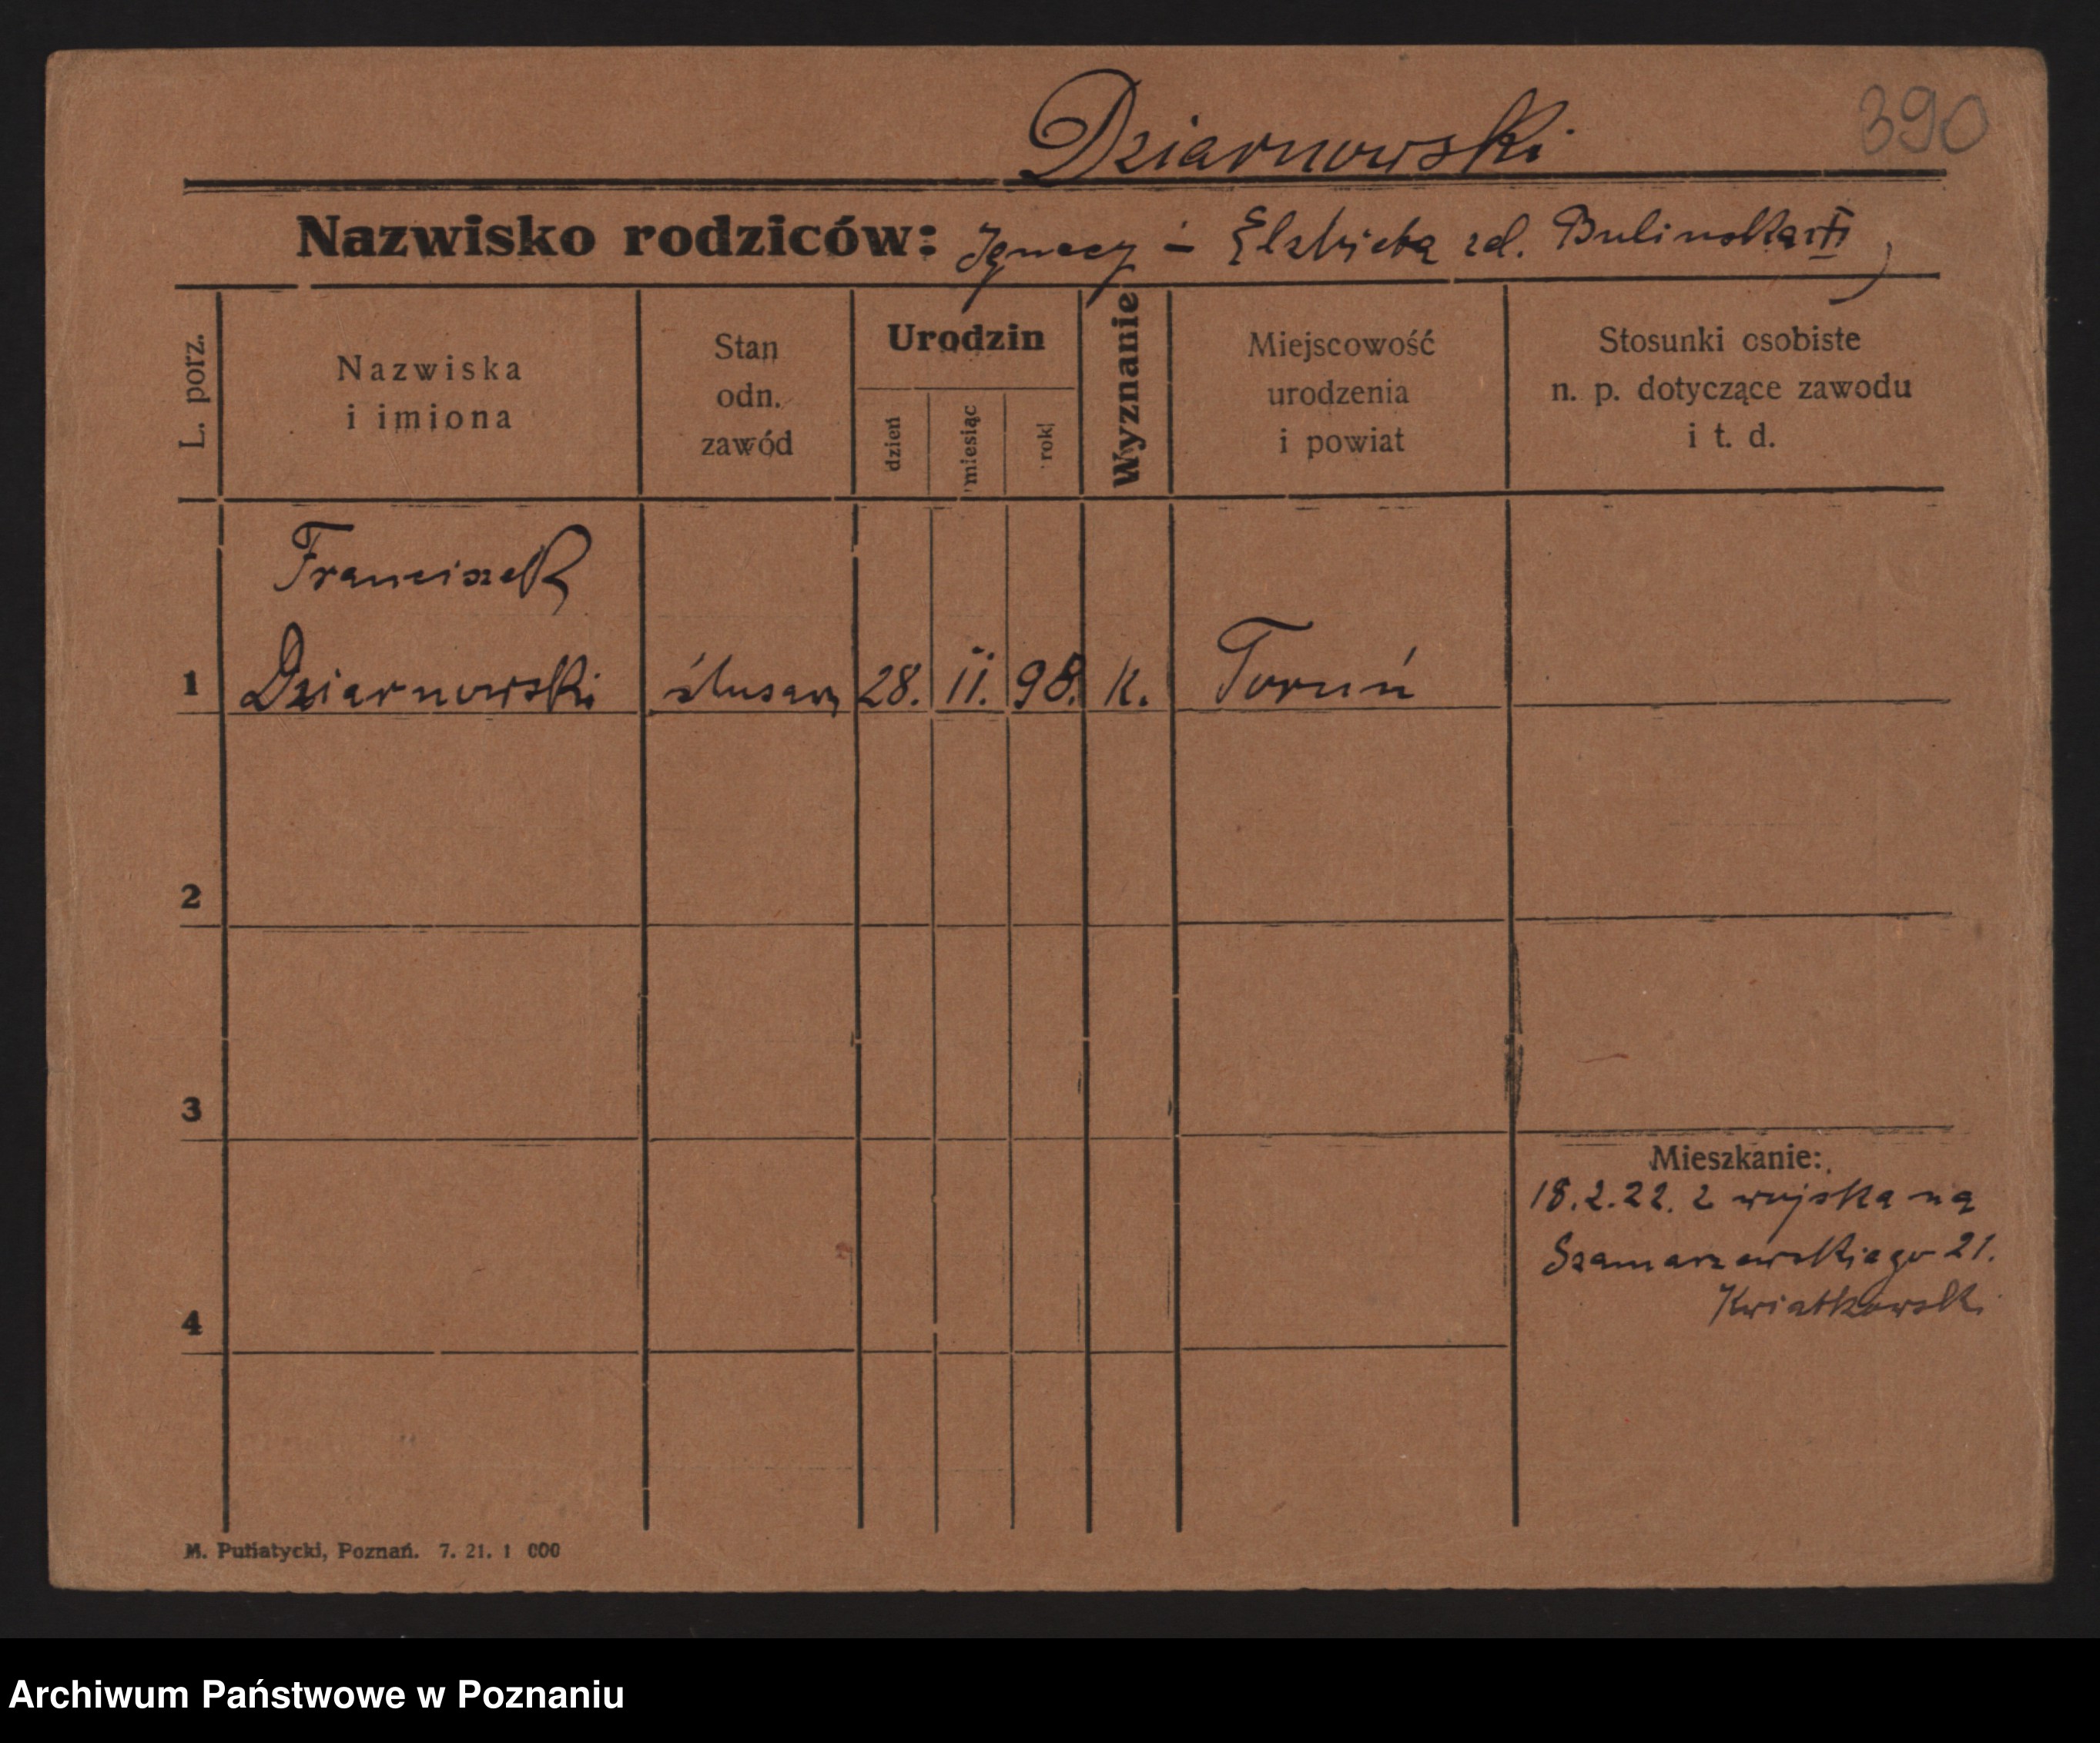 Dziarnowski
390
Nazwisko rodziców: Ignacy i Elżbieta zd. Bulinska
L. porz.
Nazwiska
i imiona
Stan
odn.
zawód
Urodzin
dzień
miesiąc
rok
Wyznanie
Miejscowość
urodzenia
i powiat
Stosunki osobiste
n. p. dotyczące zawodu
i t. d.
Franciszek
1 Dziarnowski ślusarz 28. II. 98. K. Toruń
2
3
Mieszkanie:
18.2.22. z wojska na
Szamarzewskiego 21.
Kwiatkowski
4
M. Putiatycki, Poznań. 7. 21. 1 000
Archiwum Państwowe w Poznaniu